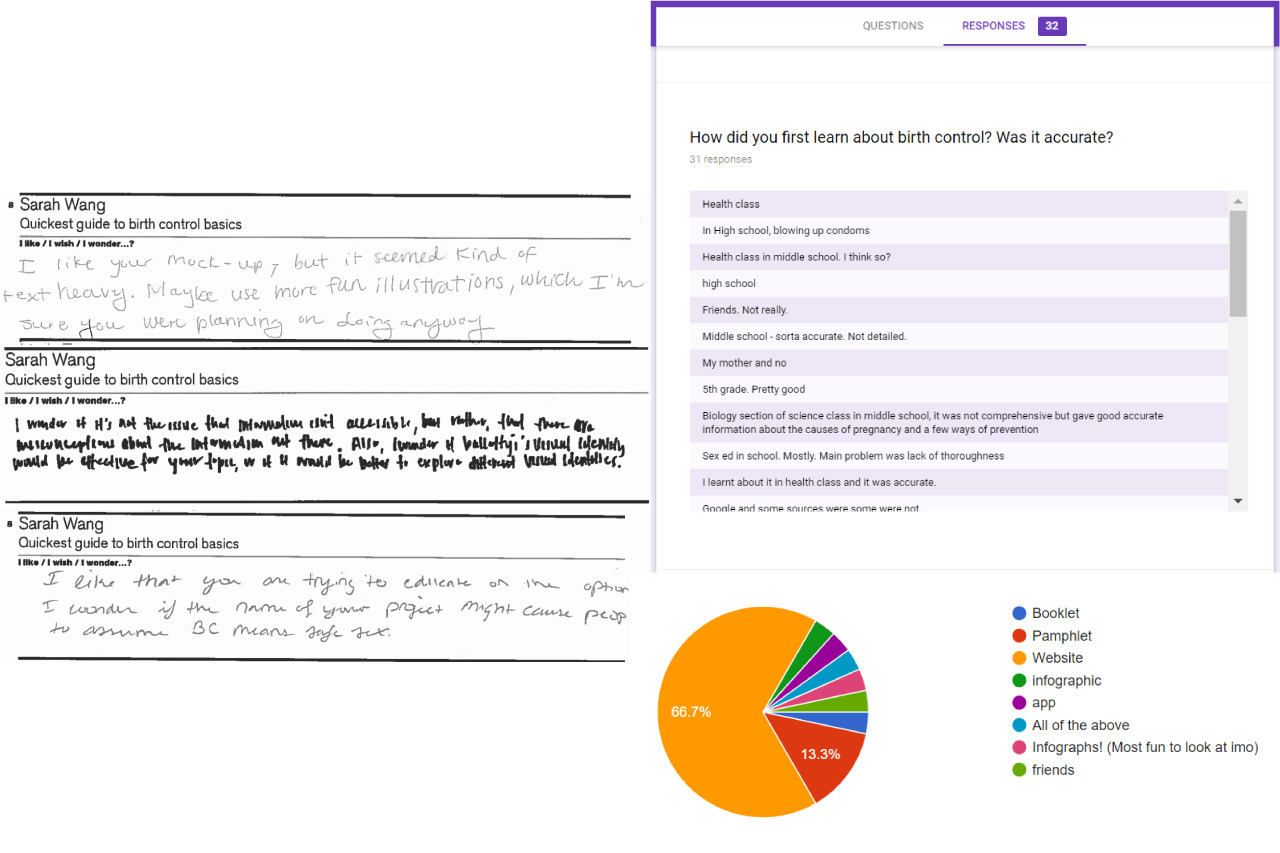 8 Sarah Wang
Quickest guide to birth control basics
I like / I wish / I wonder...?
I like your mock-up, but it seemed kind of
text heavy. Maybe use more fun illustrations, which I'm
sure you were planning on doing anyway
Sarah Wang
Quickest guide to birth control basics
I like / I wish / I wonder...?
I wonder if it's not the issue that information isn't accessible, but rather, that there are
misconceptions about the information out there. Also, I wonder if visual identity
would be effective for your topic, or if it would be better to explore different visual identities.
8 Sarah Wang
Quickest guide to birth control basics
I like / I wish / I wonder...?
I like that you are trying to educate on the option
I wonder if the name of your project might cause peop
to assume BC means safe sex.
QUESTIONS RESPONSES 32
How did you first learn about birth control? Was it accurate?
31 responses
Health class
In High school, blowing up condoms
Health class in middle school. I think so?
high school
Friends. Not really.
Middle school - sorta accurate. Not detailed.
My mother and no
5th grade. Pretty good
Biology section of science class in middle school, it was not comprehensive but gave good accurate
information about the causes of pregnancy and a few ways of prevention
Sex ed in school. Mostly. Main problem was lack of thoroughness
I learnt about it in health class and it was accurate.
Google and some sources were some were not.
66.7%
13.3%
Booklet
Pamphlet
Website
infographic
app
All of the above
Infographs! (Most fun to look at imo)
friends